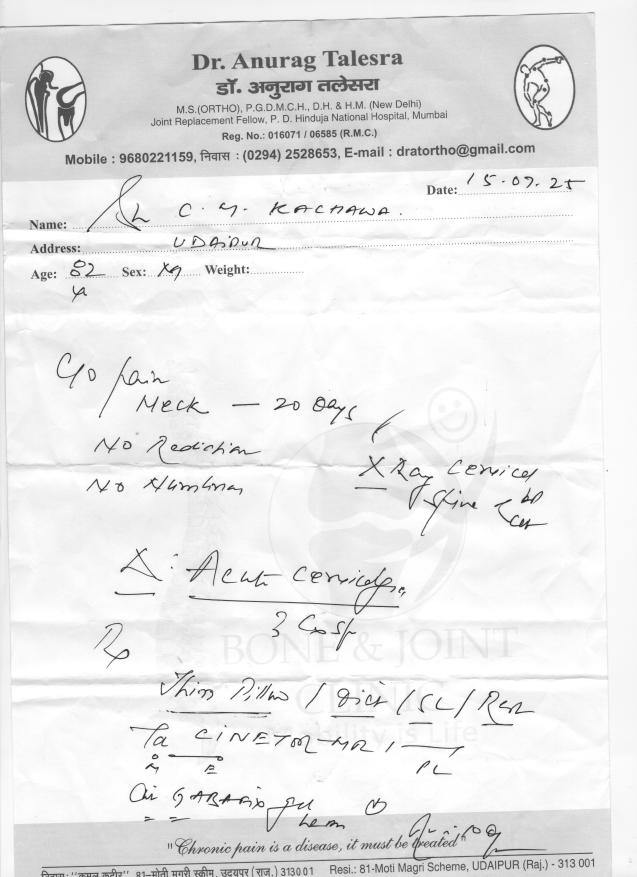 Dr. Anurag Talesra
डॉ. अनुराग तलेसरा
M.S.(ORTHO), P.G.D.M.C.H., D.H. & H.M. (New Delhi)
Joint Replacement Fellow, P. D. Hinduja National Hospital, Mumbai
Reg. No.: 016071 / 06585 (R.M.C.)
Mobile : 9680221159, निवास : (0294) 2528653, E-mail : dratortho@gmail.com
Date: 15.07.25
Name: C. M. KACHAWA.
Address: UDAIPUR
Age: 82 Sex: M Weight:
C/o pain
Neck — 20 Days
No Radiation
X Ray Cervical
Spine
No Numbness
Δ: Acute
BONE & JOINT
CLINIC
Rx
Thin Pillow / Diet / SL /
Ta CINETOR-MR
GABAFIX gel
"Chronic pain is a disease, it must be treated"
निवास: "कमल कुटीर" 81-मोती मगरी स्कीम, उदयपुर (राज.) 313001 Resi.: 81-Moti Magri Scheme, UDAIPUR (Raj.) - 313 001